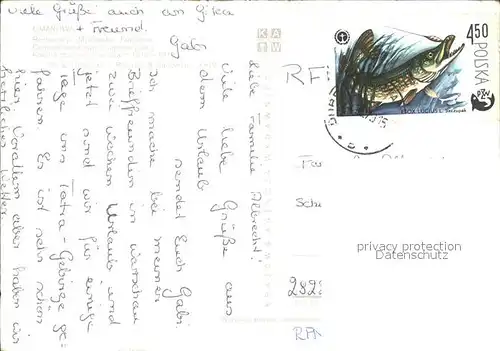 viele Grüße auch an Gika
+ Freund.
Gabi
Liebe Familie Albrecht!
Viele liebe Grüße aus
dem Urlaub
sendet Euch Gabi.
Ich mache bei meiner
Brieffreundin in Warschau
zwei Wochen Urlaub und
jetzt sind wir für einige
Tage ins Tatra-Gebirge ge-
fahren. Es ist sehr schön
hier. Vorallem aber haben wir
herrliches Wetter.
K A
T W
RF
4,50
POLSKA
ESOX LUCIUS L. Szczupak
PZW
Fam
Sche
privacy protection
Datenschutz
282
RFN